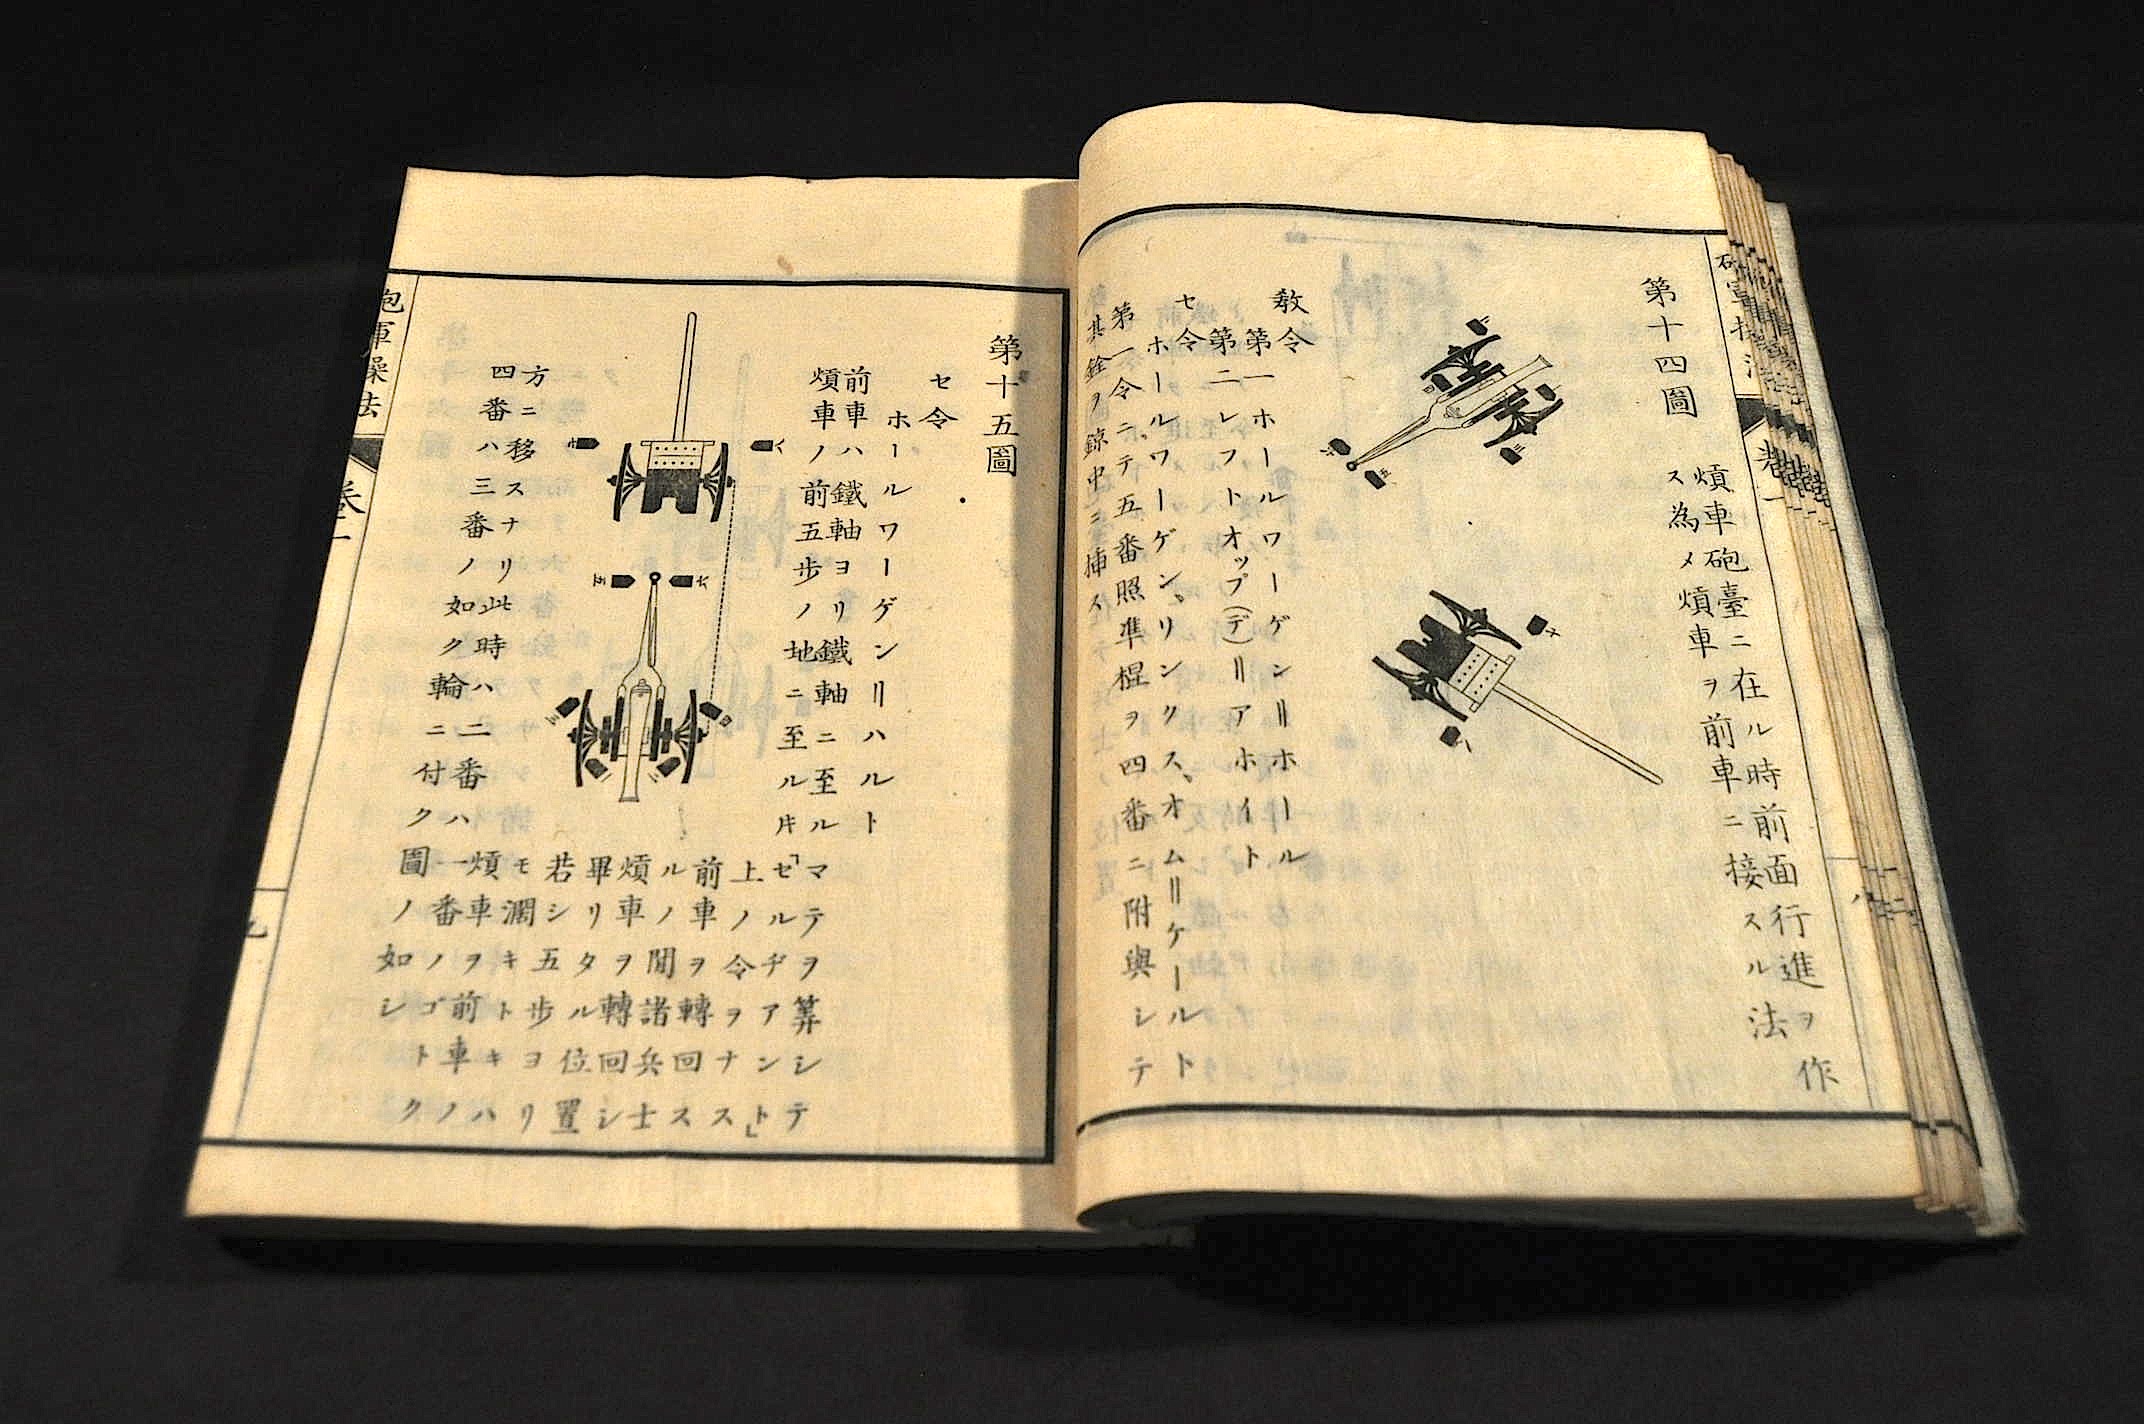 砲軍操法
卷一
八
第十四圖
煩車砲臺ニ在ル時前面行進ヲ作
ス為メ煩車ヲ前車ニ接スル法
教令
第一ホールワーゲン=ホール
第二レフトオップ(デ)=アホイト
セ令
ホールワーゲン、リンクス、オム=ケールト
第一令ニテ五番照準棍ヲ四番ニ附與シテ
其銓ヲ鐐中ニ挿ス
第十五圖
セ令
ホールワーゲン=ハルト
前車ハ鐵軸ヨリ鐵軸ニ至ルマテヲ算シテ
煩車ノ前五歩ノ地ニ至ル片「セルヂアント」
上ノ令ヲナス
前車ヲ轉回ス
ルノ間諸兵士
煩車ヲ轉回シ
畢リタル位置
若シ五歩ヨリ
モ濶キトキハ
煩車ヲ前車ノ
方ニ移スナリ此時ハ二番ハ一番ノゴトク
四番ハ三番ノ如ク輪ニ付ク圖ノ如シ
砲軍操法
卷一
九